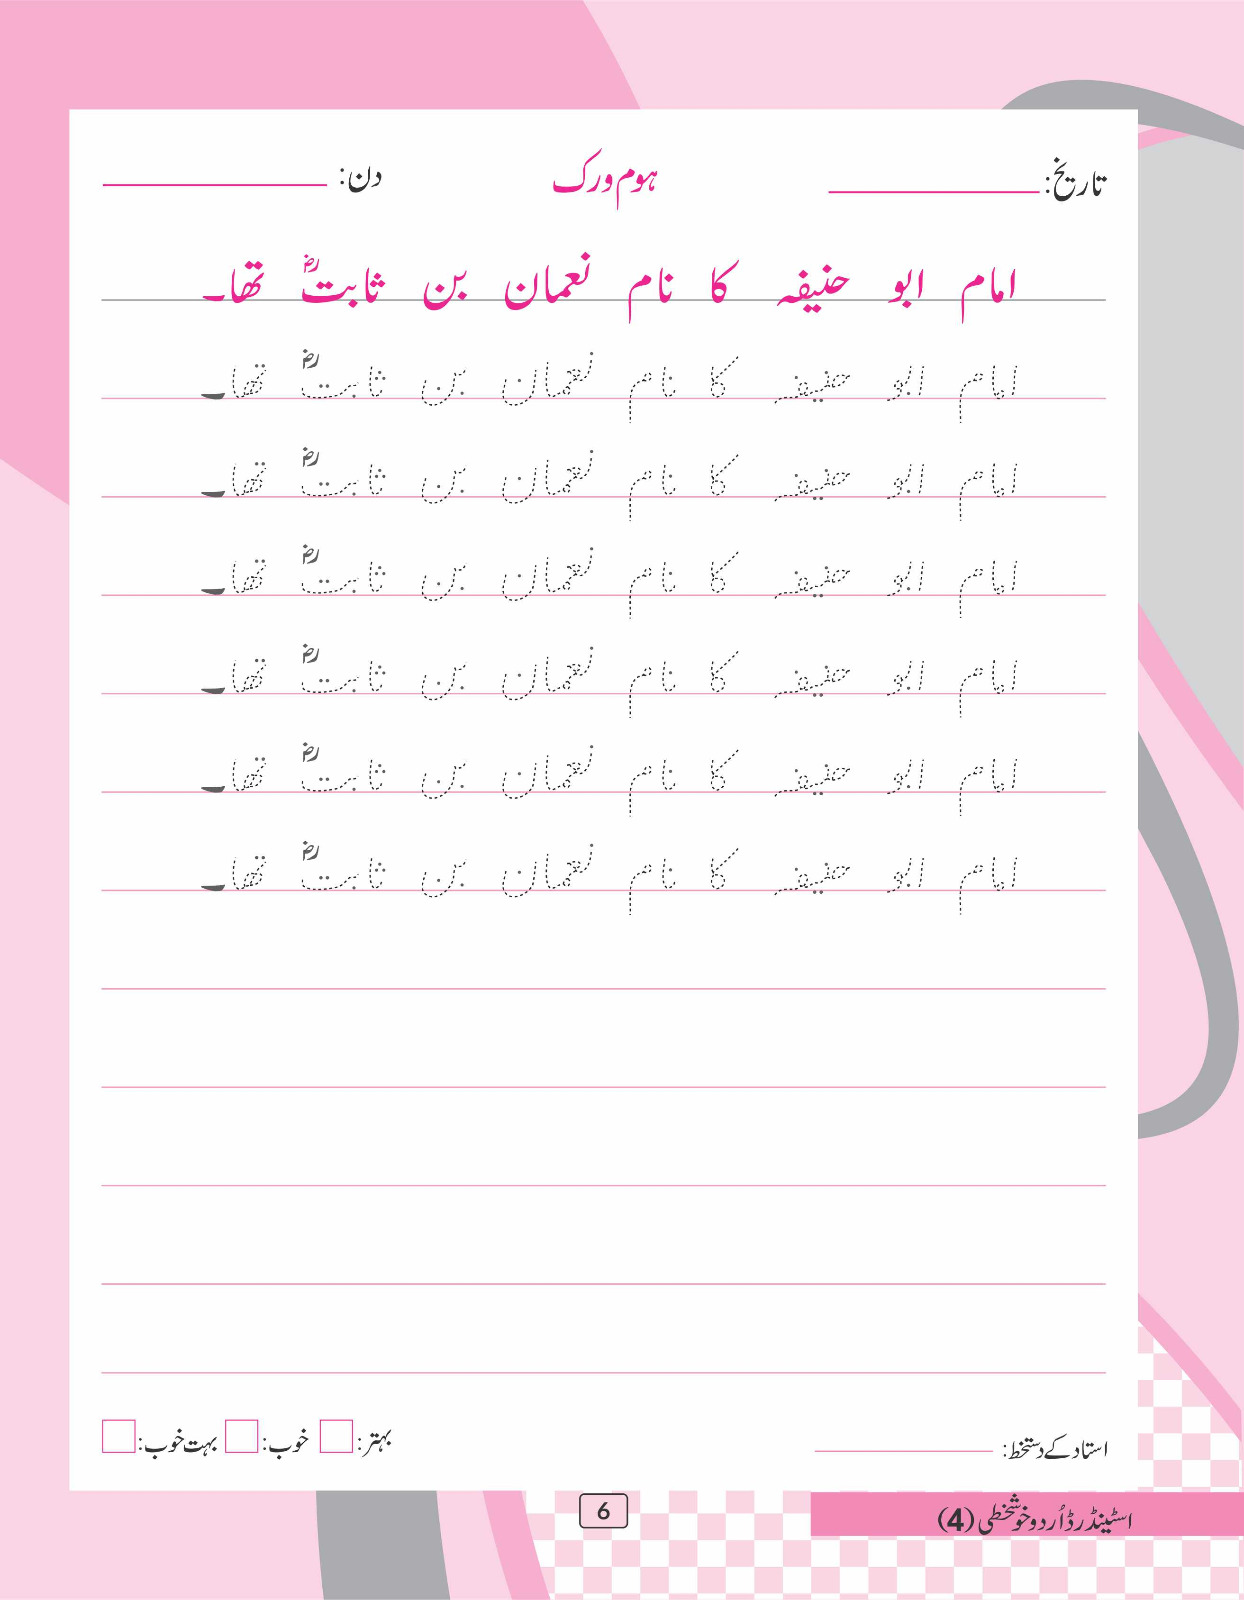 تاریخ: ہوم ورک دن:
امام ابو حنیفہ کا نام نعمان بن ثابتؓ تھا۔
امام ابو حنیفہ کا نام نعمان بن ثابتؓ تھا۔
امام ابو حنیفہ کا نام نعمان بن ثابتؓ تھا۔
امام ابو حنیفہ کا نام نعمان بن ثابتؓ تھا۔
امام ابو حنیفہ کا نام نعمان بن ثابتؓ تھا۔
امام ابو حنیفہ کا نام نعمان بن ثابتؓ تھا۔
امام ابو حنیفہ کا نام نعمان بن ثابتؓ تھا۔
استاد کے دستخط: بہتر: خوب: بہت خوب:
اسٹینڈرڈ اُردو خوشخطی (4) 6